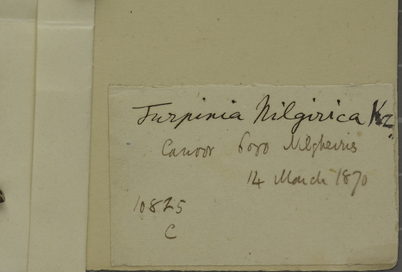 Turpinia Nilgirica Kz
Canoor 6000 Nilgheiris
14 March 1870
10825
C